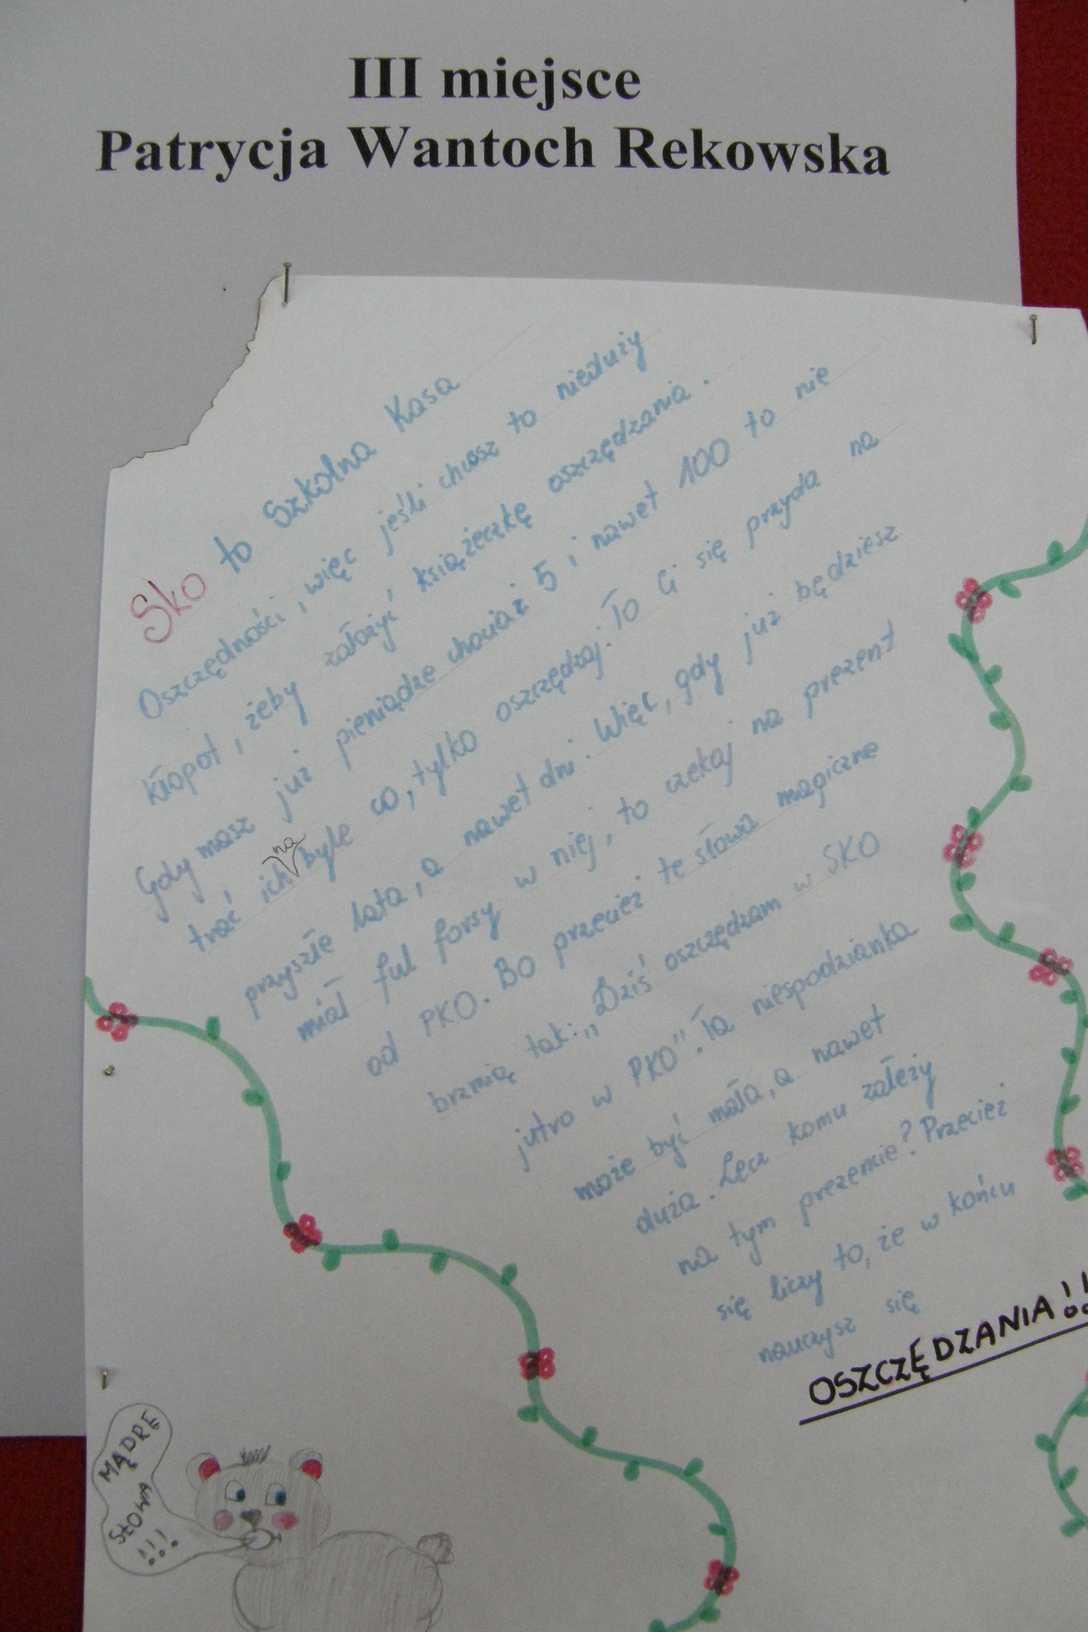 III miejsce
Patrycja Wantoch Rekowska
Sko to Szkolna Kasa
Oszczędności, więc jeśli chcesz to nieduży
kłopot, żeby założyć książeczkę oszczędzania.
Gdy masz już pieniądze chociaż 5 i nawet 100 to nie
trać ich na byle co, tylko oszczędzaj. To Ci się przyda na
przyszłe lata, a nawet dni. Więc, gdy już będziesz
miał ful forsy w niej, to czekaj na prezent
od PKO. Bo przecież te słowa magiczne
brzmią tak: „Dziś oszczędzam w SKO
jutro w PKO". Ta niespodzianka
może być mała, a nawet
duża. Lecz komu zależy
na tym prezencie? Przecież
się liczy to, że w końcu
nauczysz się
OSZCZĘDZANIA!!
MĄDRE
SŁOWA
!!!